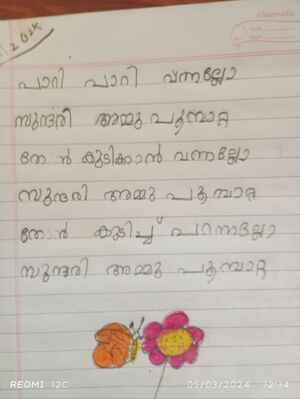 പാറി പാറി വന്നല്ലോ
സുന്ദരി അമ്മു പൂമ്പാറ്റ
തേൻ കുടിക്കാൻ വന്നല്ലോ
സുന്ദരി അമ്മു പൂമ്പാറ്റ
തേൻ കുടിച്ച് പറന്നല്ലോ
സുന്ദരി അമ്മു പൂമ്പാറ്റ
REDMI 12C 05/03/2024 12:34